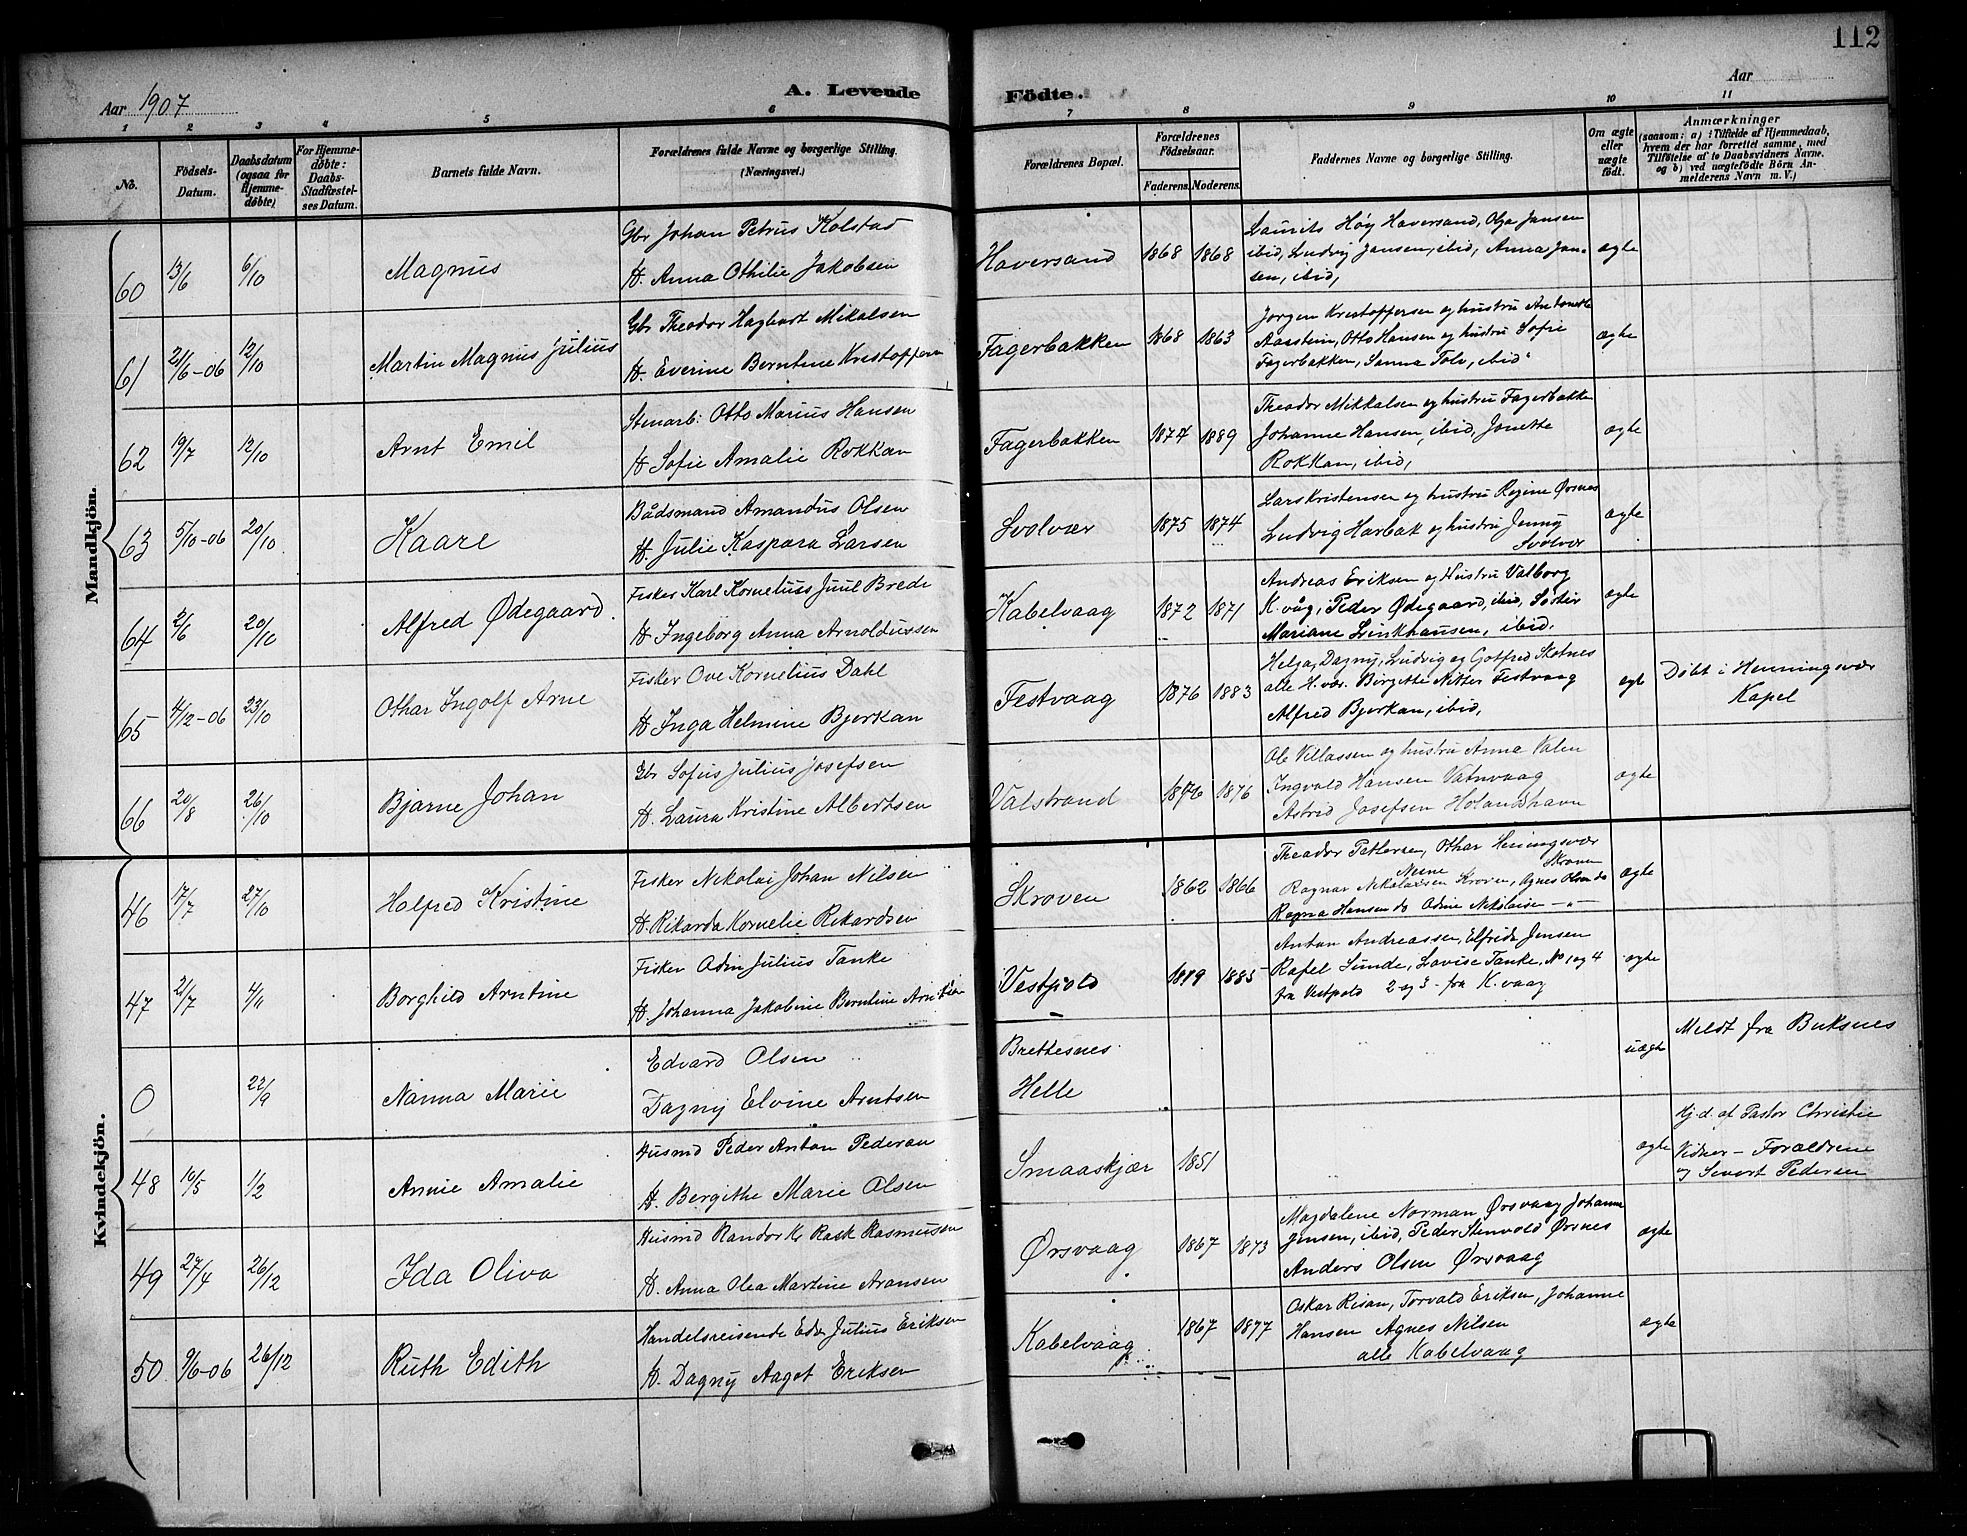 112
Aar 1907
A. Levende Födte.
Aar
1 2 3 4 5 6 7 8 9 10 11
No.
Födsels-Datum.
Daabsdatum (ogsaa for Hjemme-döbte)
For Hjemme-döbte: Daabs-Stadfæstel-ses Datum.
Barnets fulde Navn.
Forældrenes fulde Navne og borgerlige Stilling.
(Næringsvei.)
Forældrenes Bopæl.
Forældrenes Födselsaar.
Faderens. Moderens.
Faddernes Navne og borgerlige Stilling.
Om ægte eller uægte födt.
Anmærkninger
(saasom: a) i Tilfælde af Hjemmedaab, hvem der har forrettet samme, med Tilföielse af to Daabsvidners Navne, og b) ved uægtefödte Börn An-melderens Navn m. V.)
Mandkjön.
60 13/6 6/10 Magnus
Gbr Johan Petrus Kolstad
H. Anna Othilie Jakobsen
Haversand 1868 1868
Laurits Høy Haversand, Olga Jansen
ibid, Ludvig Jansen, ibid, Anna Jan-
sen, ibid,
ægte
61 21/6-06 12/10 Martin Magnus Julius
Gbr Theodor Hagbart Mikalsen
H. Everine Berntine Kristoffersen
Fagerbakken 1868 1863
Jørgen Kristoffersen og hustru Antonette
Aasstein, Otto Hansen og hustru Sofie
Fagerbakken, Sanna Tolv, ibid
ægte
62 19/7 12/10 Arnt Emil
Stenarb: Otto Marius Hansen
H Sofie Amalie Rokkan
Fagerbakken 1874 1889
Theodor Mikkalsen og hustru Fagerbakke
Johanne Hansen, ibid, Jonette
Rokkan, ibid,
ægte
63 5/10-06 20/10 Kaare
Bådsmand Amandus Olsen
H. Julie Kaspara Larsen
Svolvær 1875 1874
Lars Kristensen og hustru Regine Ørsnes
Ludvig Harbak og hustru Jenny
Svolvær
ægte
64 2/6 20/10 Alfred Ødegaard.
Fisker Karl Kornelius Juul Brede
H Ingeborg Anna Arnoldussen
Kabelvaag 1872 1871
Andreas Eriksen og Hustru Valborg
K.våg, Peder Ødegaard, ibid, Søster
Mariane Linkhausen, ibid.
ægte
65 4/12-06 23/10 Othar Ingolf Arne
Fisker Ove Kornelius Dahl
H Inga Helmine Bjerkan
Festvaag 1876 1883
Helga, Dagny, Ludvig og Gotfred Skotnes
alle H.vær. Birgitte Nitter Festvaag
Alfred Bjerkan, ibid,
ægt
Döbt i Henningsvær
Kapel
66 20/8 26/10 Bjarne Johan
Gbr Sofus Julius Josefsen
H. Laura Kristine Albertsen
Valstrand 1876 1876
Ole Villassen og hustru Anna Valen
Ingvald Hansen Vatnvaag
Astrid Josefsen Holandshavn
ægte
Kvindekjön.
46 17/7 27/10 Halfred Kristine
Fisker Nikolai Johan Nilsen
H. Rikarda Kornelie Rikardsen
Skroven 1862 1866
Theodor Pettersen, Othar Heningsvær
Skroven
Ragnar Nikolaisen Kroven, Agnes Olsen do
Ragna Hansen do Odine Nikolaise - " -
ægte
47 21/7 4/11 Borghild Arntine
Fisker Odin Julius Tanke
H. Johanna Jakobine Berntine
Vestpold 1885
Anton Andreassen, Elfrida Jensen
Rafel Sunde, Lovise Tanke, No 1 og 4
fra Vestpold 2 og 3 - fra K.vaag
ægte
0 22/9 Nanna Marie
Edvard Olsen
Dagny Elvine Arntsen
Brettesnes
Helle
uægte
Meldt fra Buksnes
48 10/5 1/2 Annie Amalie
Husmd Peder Anton Pedersen
H. Bergithe Marie Olsen
Smaaskjær 1851
ægte
Hj.d. af Pastor Christie
Vidner - Forældrene
og Sivert Pedersen
49 27/4 26/12 Ida Oliva
Husmd Randor K. Rask Rasmussen
H. Anna Olea Martine Aransen
Ørsvaag 1867 1873
Magdalene Norman Ørsvaag Johanne
Jensen, ibid, Peder Stenvold Ørsnes
Anders Olsen Ørsvaag
ægte
50 9/6-06 26/12 Ruth Edith
Handelsreisende Edv. Julius Eriksen
H. Dagny Aagot Eriksen
Kabelvaag 1867 1877
Oskar Risan, Torvald Eriksen, Johanne
Hansen Agnes Nilsen
alle Kabelvaag
ægte